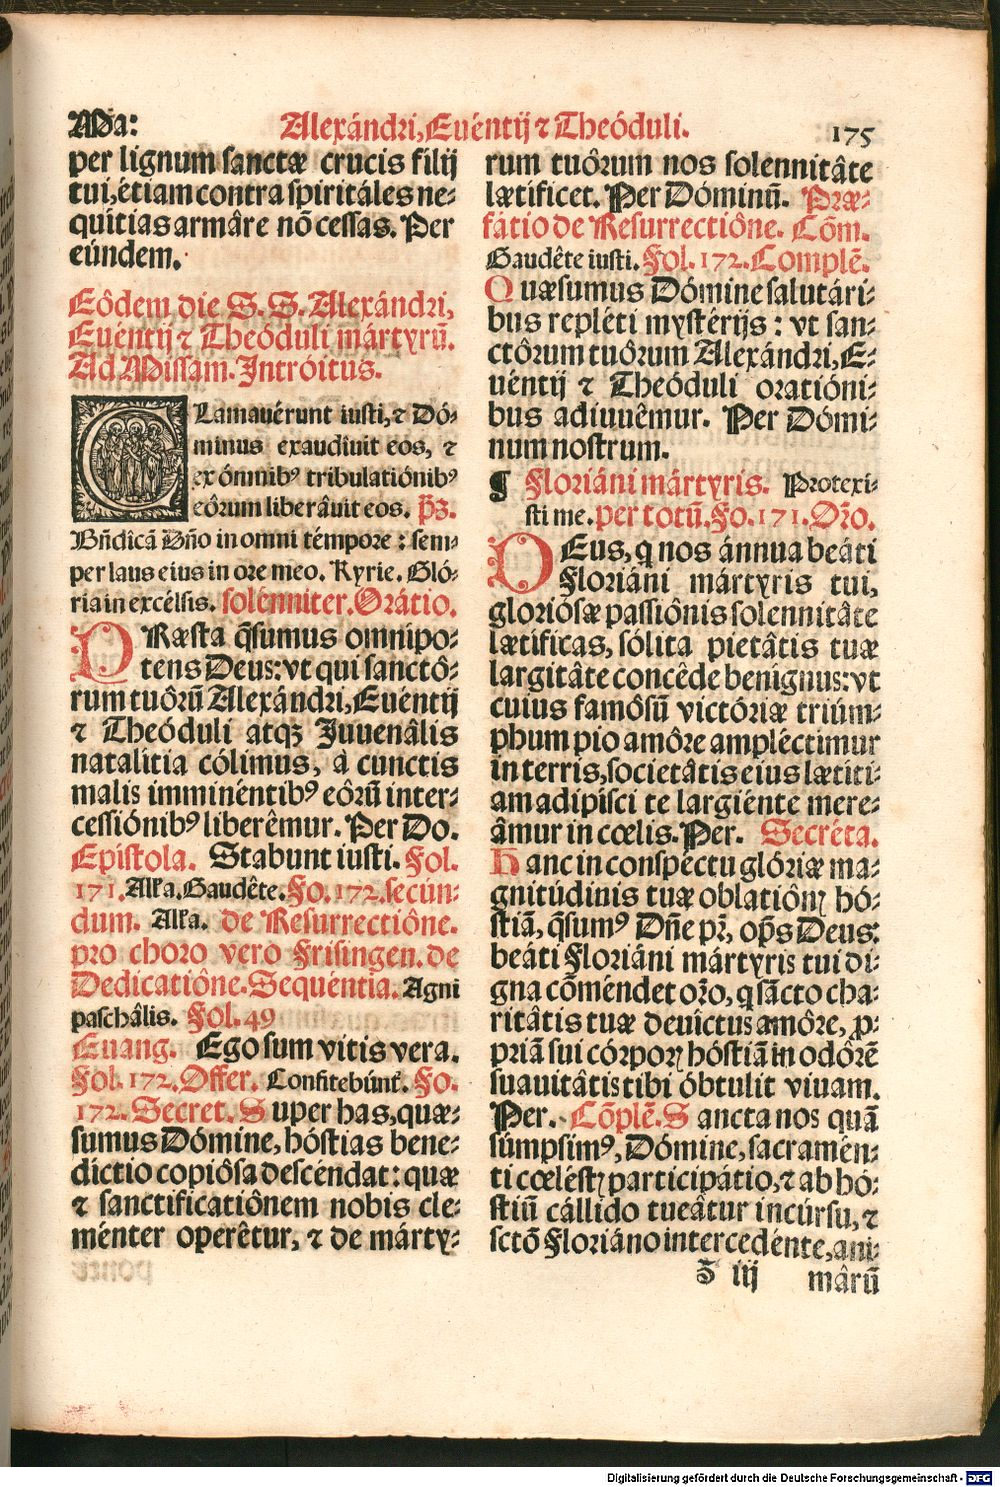 Ma:
Alexándri, Euéntij ⁊ Theóduli.
175
per lignum sanctæ crucis filij
tui, étiam contra spiritáles ne-
quítias armâre nō cessas. Per
eúndem.
Eôdem die S. S. Alexándri,
Euéntij ⁊ Theóduli mártyrū.
Ad Missam. Intróitus.
CLamauérunt iusti, ⁊ Dó-
minus exaudîuit eos, ⁊
ex ómnibꝰ tribulatiónibꝰ
eôrum liberâuit eos. p̄ꝫ.
Bn̄dicā Dn̄o in omni témpore: sem-
per laus eius in ore meo. Kyrie. Gló-
ria in excélsis. solénniter. Orátio.
PRæsta q̄sumus omnípo-
tens Deus: vt qui sanctô-
rum tuôrū Alexándri, Euéntij
⁊ Theóduli atqꝫ Juuenâlis
natalítia cólimus, à cunctis
malis imminéntibꝰ eôrū inter-
cessiónibꝰ liberêmur. Per Do.
Epistola. Stabunt iusti. Fol.
171. Alła. Gaudête. Fo. 172. secún-
dum. Alła. de Resurrectiône.
pro choro vero Frisingen. de
Dedicatiône. Sequéntia. Agni
paschâlis. Fol. 49
Euang. Ego sum vitis vera.
Fol. 172. Offer. Confitebúnt̄. Fo.
172. Secret. Super has, quæ-
sumus Dómine, hóstias bene-
dictio copiôsa descéndat: quæ
⁊ sanctificatiônem nobis cle-
ménter operêtur, ⁊ de márty-
rum tuôrum nos solennitâte
lætíficet. Per Dóminū. Præ-
fátio de Resurrectiône. Cōm.
Gaudête iusti. Fol. 172. Complē.
Quæsumus Dómine salutári-
bus repléti mystérijs: vt san-
ctôrum tuôrum Alexándri, E-
uéntij ⁊ Theóduli oratióni-
bus adiuuêmur. Per Dómi-
num nostrum.
¶ Floriáni mártyris. Protexi-
sti me. per totū. Fo. 171. Oŕo.
DEus, q nos ánnua beáti
Floriáni mártyris tui,
gloriósæ passiônis solennitâte
lætíficas, sólita pietâtis tuæ
largitâte concêde benígnus: vt
cuius famôsū victóriæ triúm-
phum pio amôre ampléctimur
in terris, societâtis eius lætíti-
am adipísci te largiénte mere-
âmur in cœlis. Per. Secréta.
Hanc in conspéctu glóriæ ma-
gnitúdinis tuæ oblatiônꝭ hó-
stiā, q̄sumꝰ Dn̄e pr̄, op̄s Deus:
beáti Floriáni mártyris tui di-
gna cōméndet oŕo, q sācto cha-
ritâtis tuæ deuíctus amôre, ꝓ-
priā sui córporꝭ hóstiā in odôrē
suauitâtis tibi óbtulit viuam.
Per. Cōplē. Sancta nos quā
súmpsimꝰ, Dómine, sacramén-
ti cœléstꝭ participátio, ⁊ ab hó-
stiū cállido tueâtur incúrsu, ⁊
sctō Floriáno intercedénte, ani-
Z iij
mârū
Digitalisierung gefördert durch die Deutsche Forschungsgemeinschaft - DFG